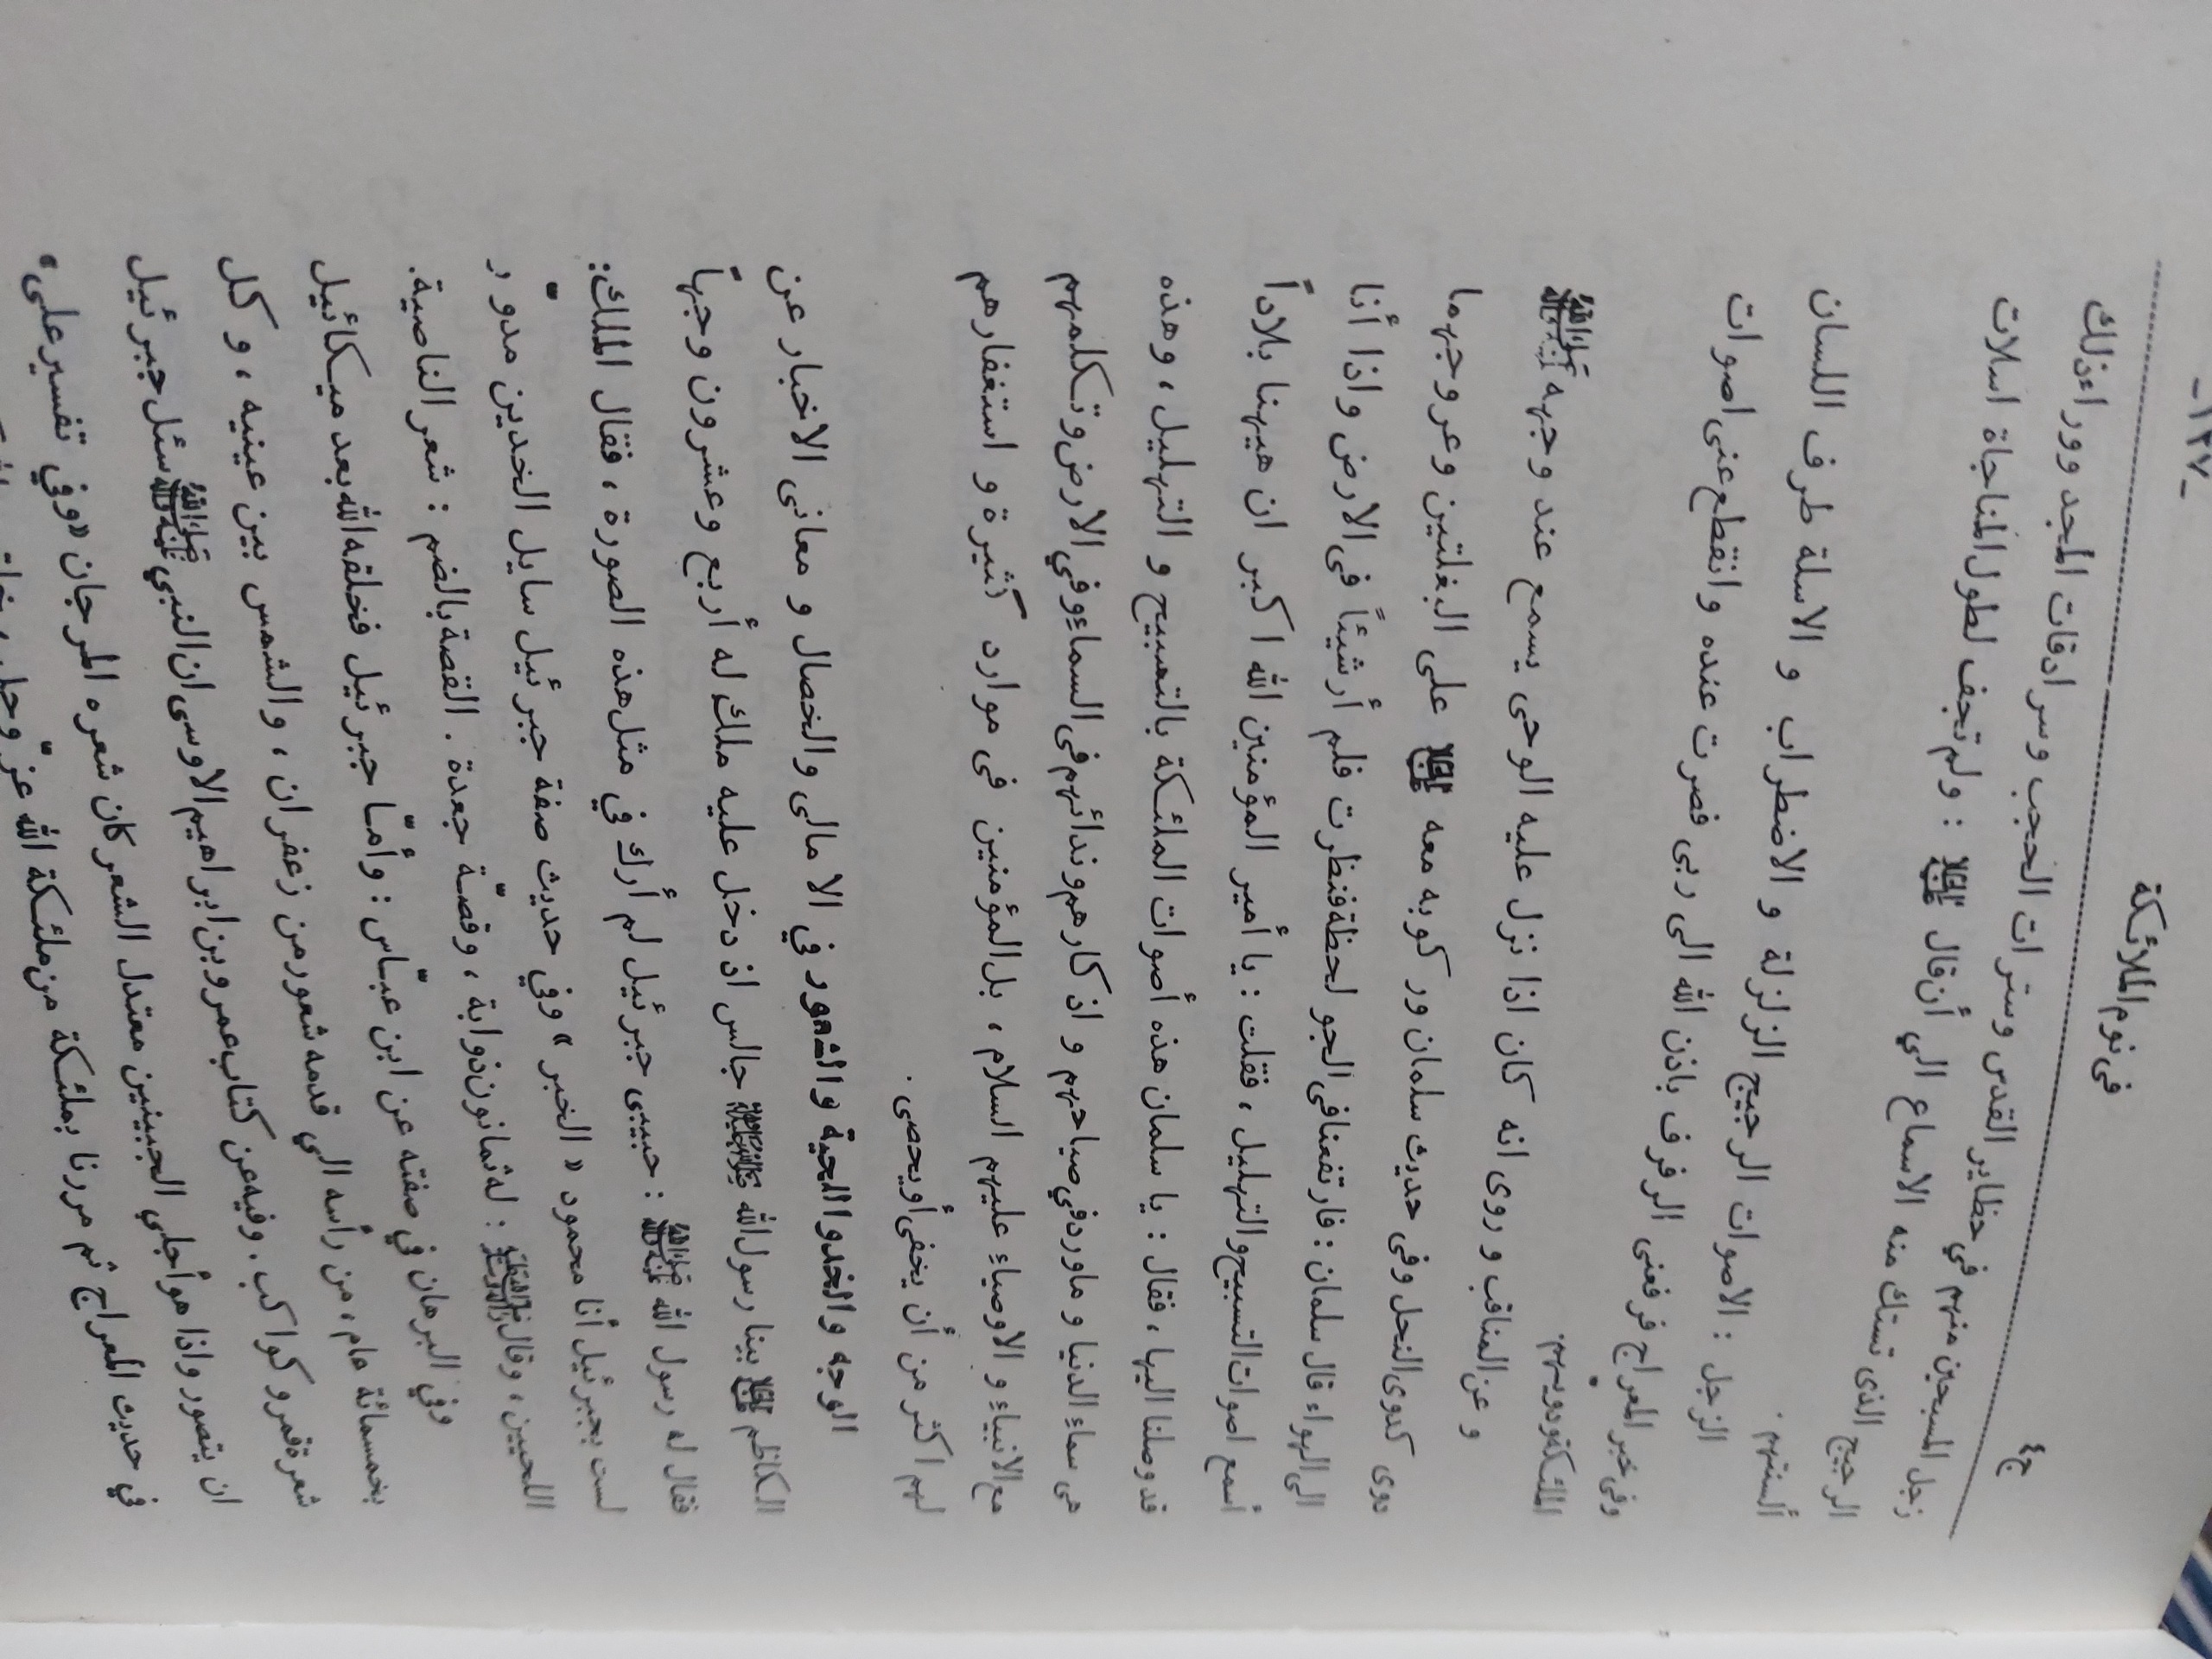 ج٤ فى نوم الملائكة -١٢٧-
زجل المسبحين منهم في حظاير القدس وسترات الحجب وسرادقات المجد ووراءذلك
الرجيج الذى تستك منه الاسماع الي أن قال عليه السلام : ولم تجف لطول المناجاة اسلات
ألسنتهم .
الزجل : الاصوات الرجيج الزلزلة و الاضطراب و الاسلة طرف اللسان
وفى خبر المعراج فرفعنى الرفرف باذن الله الى ربى فصرت عنده وانقطع عنى اصوات
الملئكة ودويهم.
و عن المناقب و روى انه كان اذا نزل عليه الوحى يسمع عند وجهه صلى الله عليه وآله
دوى كدوى النحل وفى حديث سلمان وركوبه معه عليه السلام على البغلتين وعروجهما
الى الهواء قال سلمان : فارتفعنافى الجو لحظة فنظرت فلم أرشيئاً فى الارض واذا أنا
أسمع اصوات التسبيح والتهليل ، فقلت : يا أمير المؤمنين الله اكبر ان هيهنا بلاداً
قد وصلنا اليها ، فقال : يا سلمان هذه أصوات الملئكة بالتسبيح و التهليل ، وهذه
هى سماء الدنيا و ماورد في صياحهم و اذكارهم وندائهم فى السماء وفي الارض وتكلمهم
مع الانبياء و الاوصياء عليهم السلام ، بل المؤمنين فى موارد كثيرة و استغفارهم
لهم اكثر من أن يخفى أويحصى .
الوجه والخدو اللحية والشعور في الامالى والخصال و معانى الاخبار عن
الكاظم عليه السلام بينا رسول الله صلى الله عليه وآله جالس اذ دخل عليه ملك له أربع وعشرون وجهاً
فقال له رسول الله صلى الله عليه وآله : حبيبى جبرئيل لم أرك في مثل هذه الصورة ، فقال الملك:
لست بجبرئيل أنا محمود « الخبر » وفي حديث صفة جبرئيل سايل الخدين مدور
اللحيين ، وقال : له ثمانون ذوابة ، وقصّة جعدة . القصة بالضم : شعر الناصية.
وفي البرهان في صفته عن ابن عبّاس : وأمّا جبرئيل فخلقه الله بعد ميكائيل
بخمسمائة عام ، من رأسه الي قدمه شعور من زعفران ، والشمس بين عينيه ، و كل
شعرة قمر و كواكب . وفيه عن كتاب عمروبن ابراهيم الاوسى ان النبي صلى الله عليه وآله سئل جبرئيل
ان يتصور واذا هو أجلي الجبينين معتدل الشعر كان شعره المرجان «وفي تفسير على»
في حديث المعراج ثم مررنا بملئكة من ملئكة الله عزّ وجل